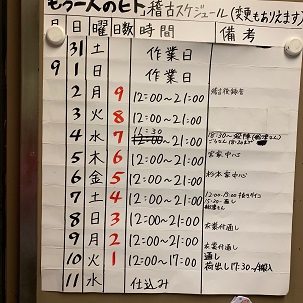 もう一人のヒト 稽古スケジュール(変更もありえます)
月 日 曜 日数 時間 備考
31 土 作業日
9 1 日 作業日
2 月 9 12:00~21:00
3 火 8 12:00~21:00
4 水 7 11:30 12:00~21:00
5 木 6 12:00~21:00 宮家中心
6 金 5 12:00~21:00 杉本家中心
7 土 4 12:00~21:00
8 日 3 12:00~21:00 衣裳付通し
9 月 2 12:00~21:00 衣裳付通し
10 火 1 12:00~17:00 通し
荷出し17:30~
11 水 仕込み